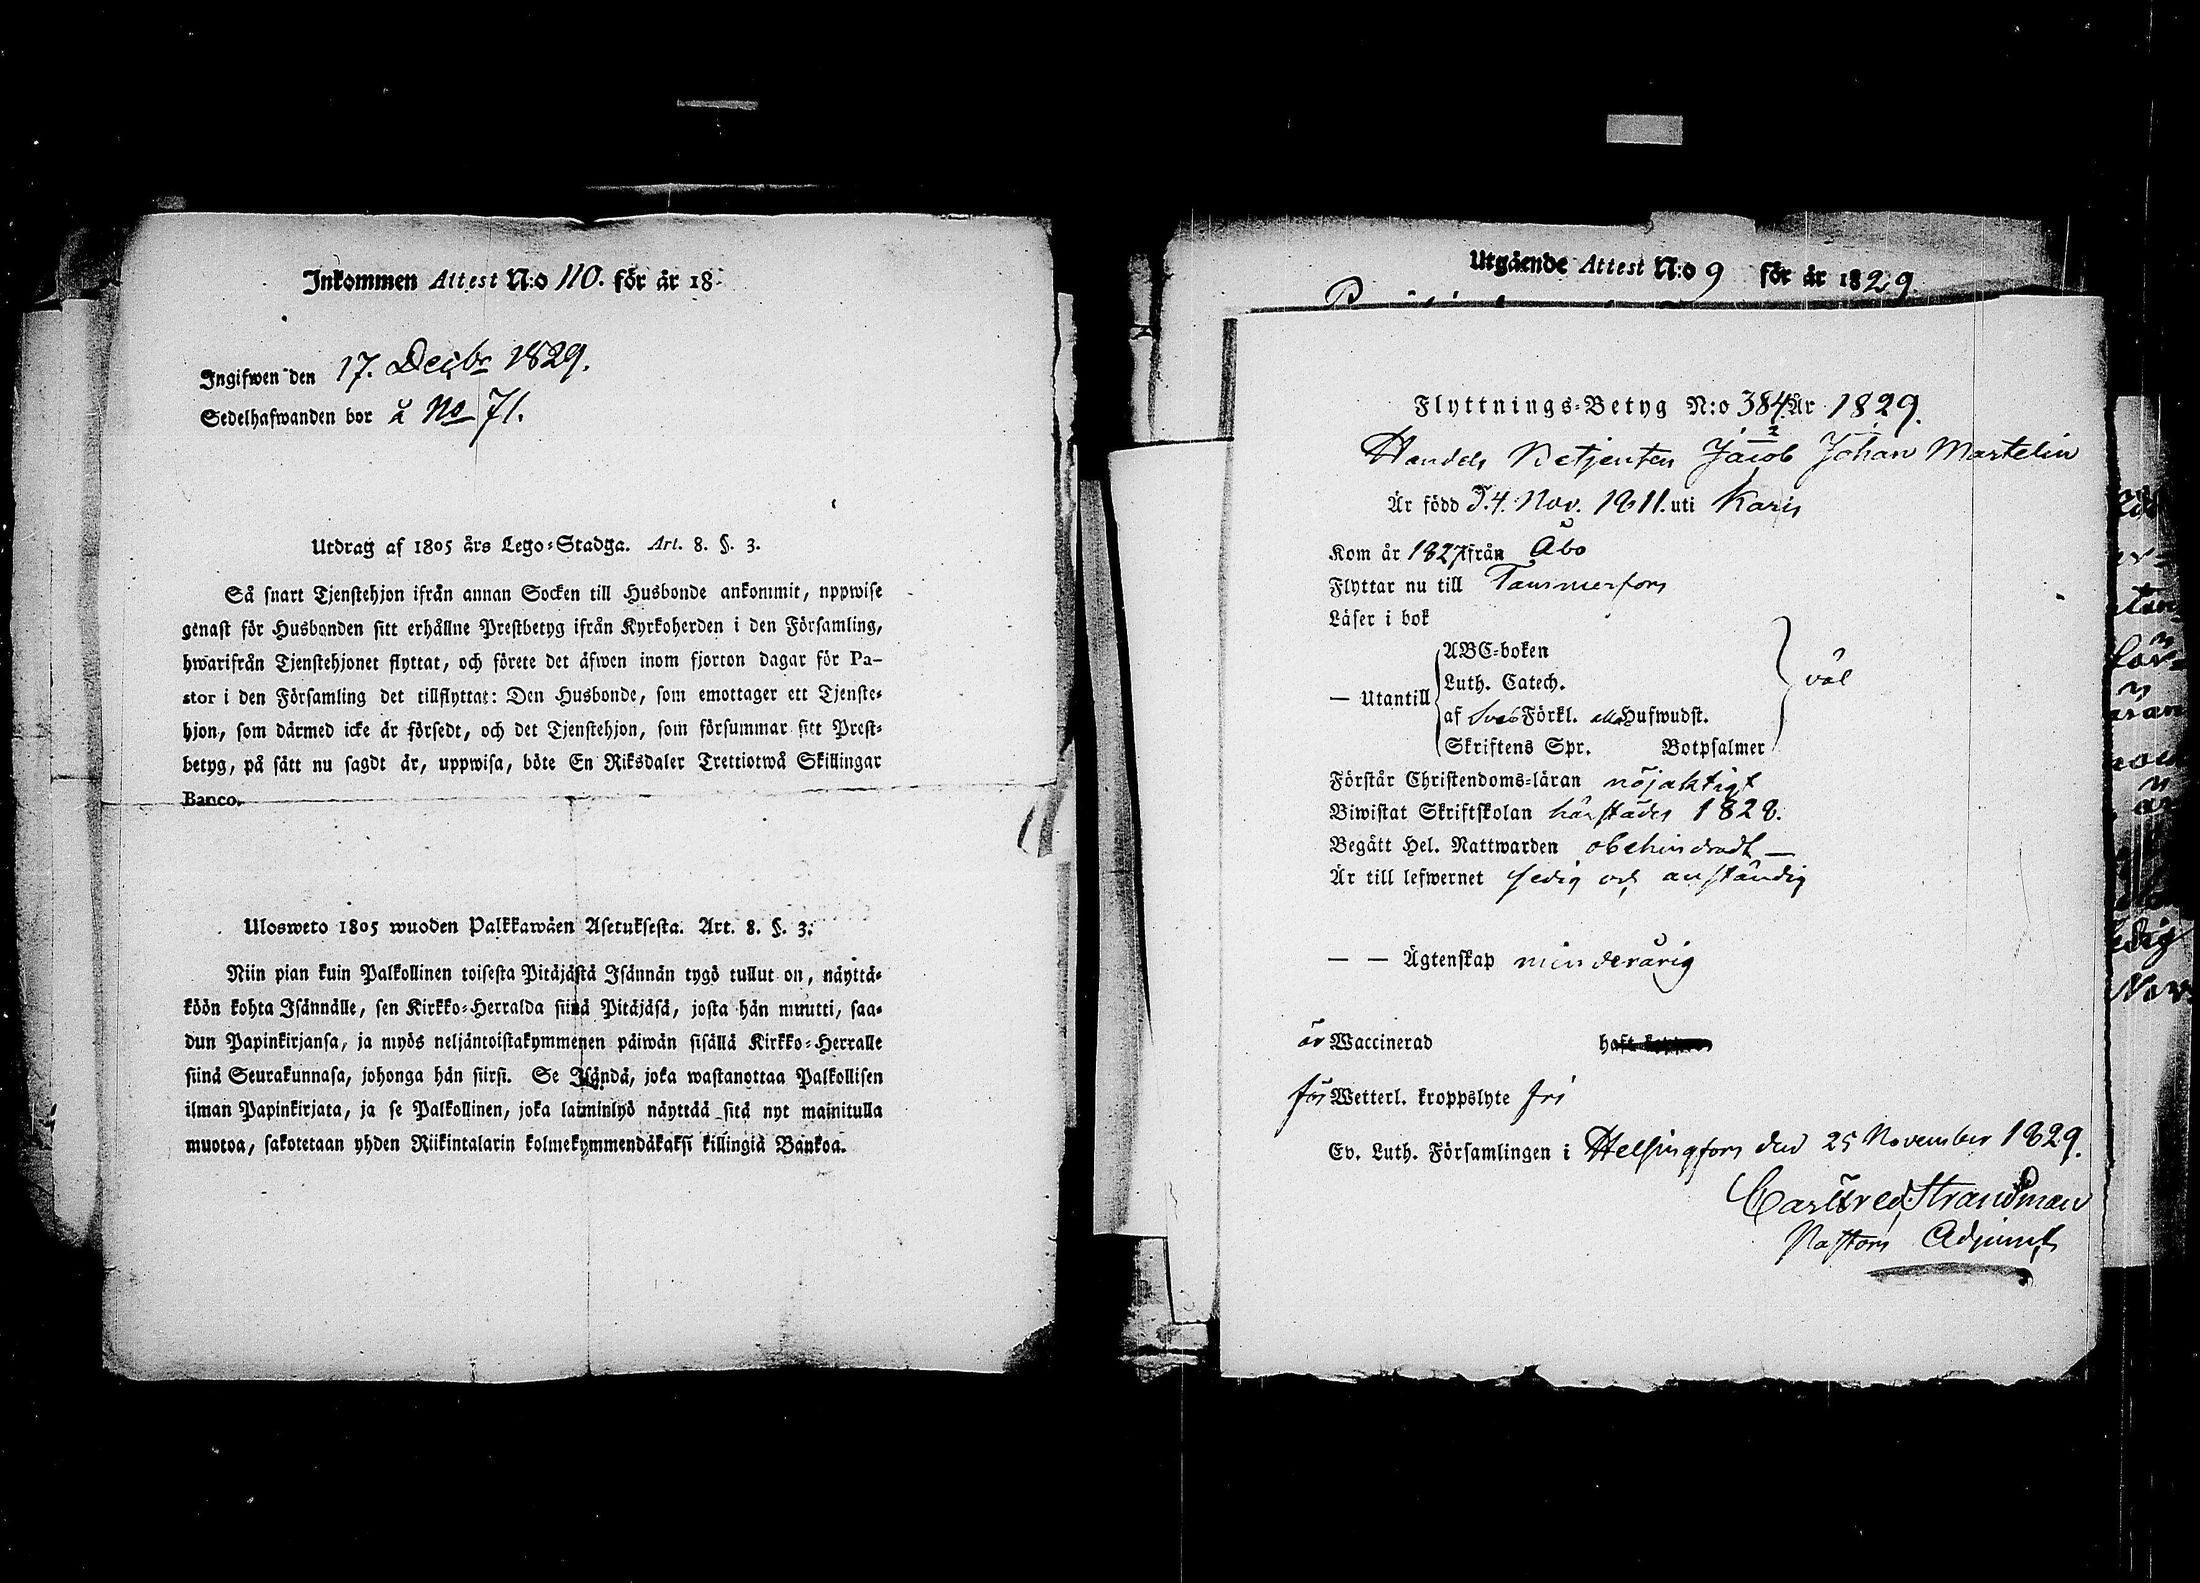 Inkommen Attest N:o 110. för år 18
Ingifwen den 17. Decbr 1829.
Sedelhafwanden bor å No 71.
Utdrag af 1805 års Lego-Stadga. Art. 8. §. 3.
Så snart Tjenstehjon ifrån annan Socken till Husbonde ankommit, uppwise
genast för Husbonden sitt erhållne Prestbetyg ifrån Kyrkoherden i den Församling,
hwarifrån Tjenstehjonet flyttat, och förete det äfwen inom fjorton dagar för Pa-
stor i den Församling det tillflyttat: Den Husbonde, som emottager ett Tjenste-
hjon, som därmed icke är försedt, och det Tjenstehjon, som försummar sitt Prest-
betyg, på sätt nu sagdt är, uppwisa, böte En Riksdaler Trettiotwå Skillingar
Banco.
Ulosweto 1805 wuoden Palkkawäen Asetuksesta. Art. 8. §. 3.
Niin pian kuin Palkollinen toisesta Pitäjästä Isännän tygö tullut on, näyttä-
köön kohta Isännälle, sen Kirkko-Herralda siinä Pitäjäsä, josta hän muutti, saa-
dun Papinkirjansa, ja myös neljäntoistakymmenen päiwän sisällä Kirkko-Herralle
siinä Seurakunnasa, johonga hän siirsi. Se Isändä, joka wastanottaa Palkollisen
ilman Papinkirjata, ja se Palkollinen, joka laiminlyö näyttää sitä nyt mainitulla
muotoa, sakotetaan yhden Riikintalarin kolmekymmendäkaksi killingiä Bankoa.
Utgående Attest N:o 9 för år 1829.
Flyttnings-Betyg N:o 384 År 1829.
Handels Betjenten Jacob Johan Martelin
Är född d. 4. Nov. 1811. uti Karis
Kom år 1827 från Åbo
Flyttar nu till Tammerfors
Läser i bok
ABC-boken
Luth. Catech.
— Utantill väl
af Sveb Förkl. alla Hufwudst.
Skriftens Spr. Botpsalmer
Förstår Christendoms-läran nöjaktigt
Biwistat Skriftskolan härstädes 1828.
Begått Hel. Nattwarden obehindradt —
Är till lefwernet sedig och anständig
— — Ägtenskap minderårig
är Waccinerad haft
för Wetterl. kroppslyte fri
Ev. Luth. Församlingen i Helsingfors den 25 November 1829.
Carl Fred Strandman
Pastors Adjunct